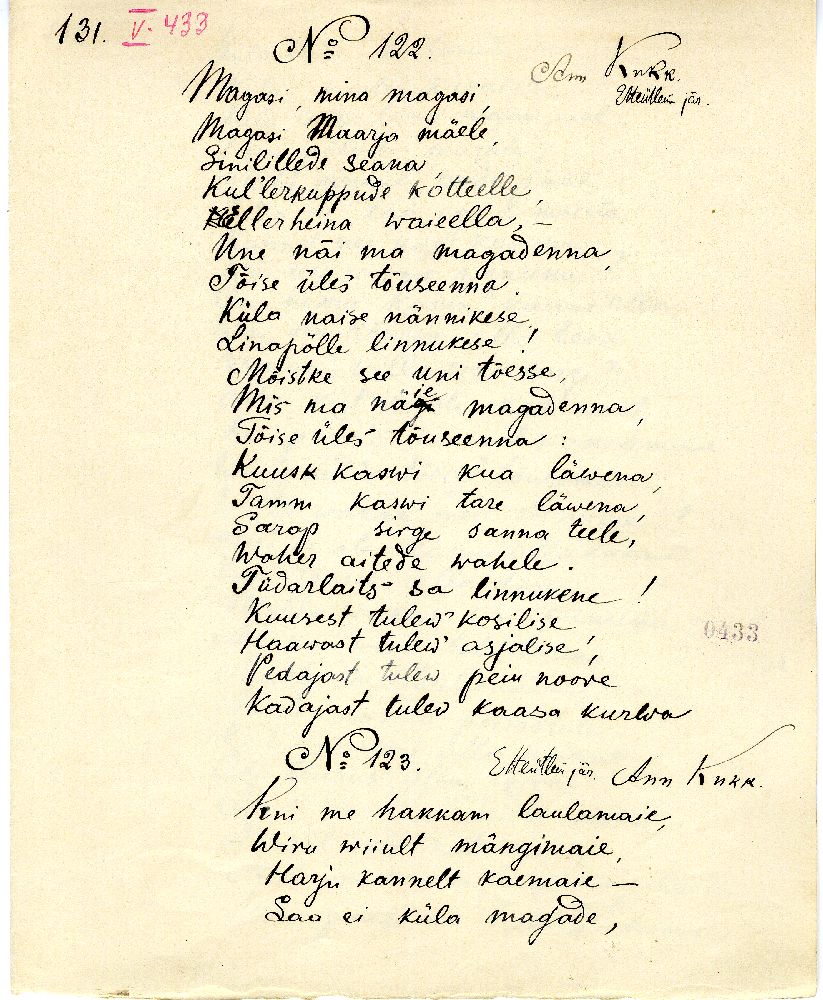 131. V. 433
№ 122.
Ann Kukk.
E. Heütlein jär.
Magasi, mina magasi,
Magasi Maarja mäele,
Sinilillede seana,
Kul'lerkuppude kotteelle,
Kellerheina waieella, –
Une näi ma magadenna,
Tõise üles tõuseenna.
Küla naise nännikese,
Linapõlle linnukese!
Mõistke see uni tõesse,
Mis ma näie magadenna,
Tõise üles tõuseenna:
Kuusk kaswi kua läwena,
Tamm kaswi tare läwena,
Sarap sirge sanna teele,
Waher aitede wahele.
Tüdarlaits sa linnukene!
Kuusest tulew kosilise
Haawast tulew asjalise!,
Pedajast tulew peiu noore
Kadajast tulew kaasa kurwa
0433
№ 123.
E. Heütlein jär. Ann Kukk.
Kui me hakkam laulamaie,
Wiru wiiult mängimaie,
Harju kannelt kaemaie –
Saa ei küla magade,